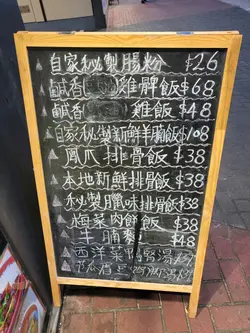 自家秘製腸粉 $26
鹹香雞髀飯 $68
鹹香雞飯 $48
自家秘製新鮮羊腩飯 $108
鳳爪排骨飯 $38
本地新鮮排骨飯 $38
秘製臘味排骨飯 $38
梅菜肉餅飯 $38
牛腩麵 $48
西洋菜